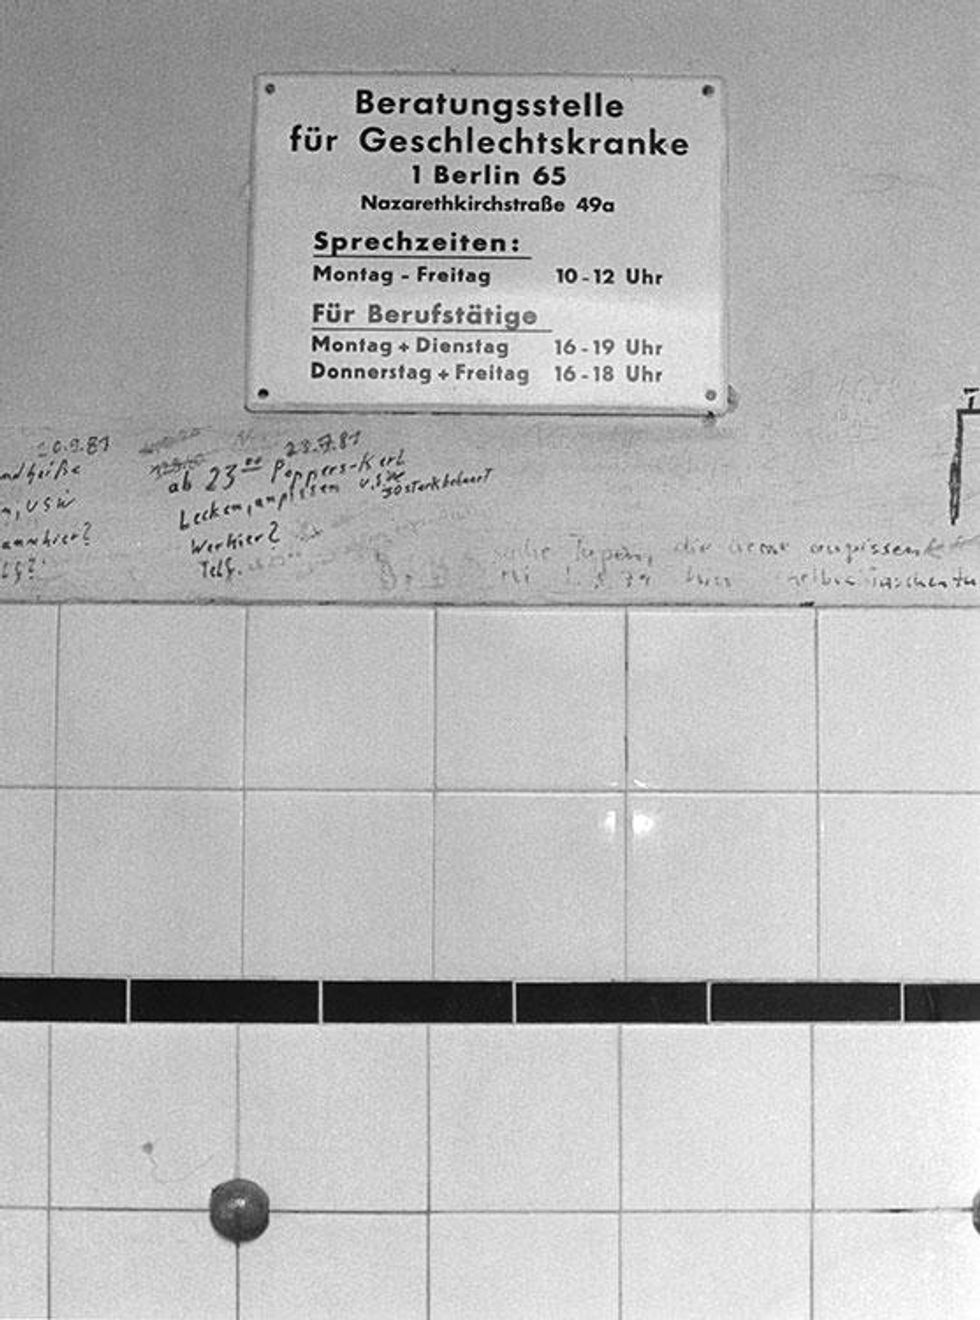 Beratungsstelle
für Geschlechtskranke
1 Berlin 65
Nazarethkirchstraße 49a
Sprechzeiten:
Montag - Freitag 10-12 Uhr
Für Berufstätige
Montag + Dienstag 16-19 Uhr
Donnerstag + Freitag 16-18 Uhr
20.9.81
usw
23.7.81
ab 23⁰⁰ Poppers-Kerl
Lecken, anpissen usw
stark behaart
Wer hier?
Telf.
suche Typen, die gerne anpissen